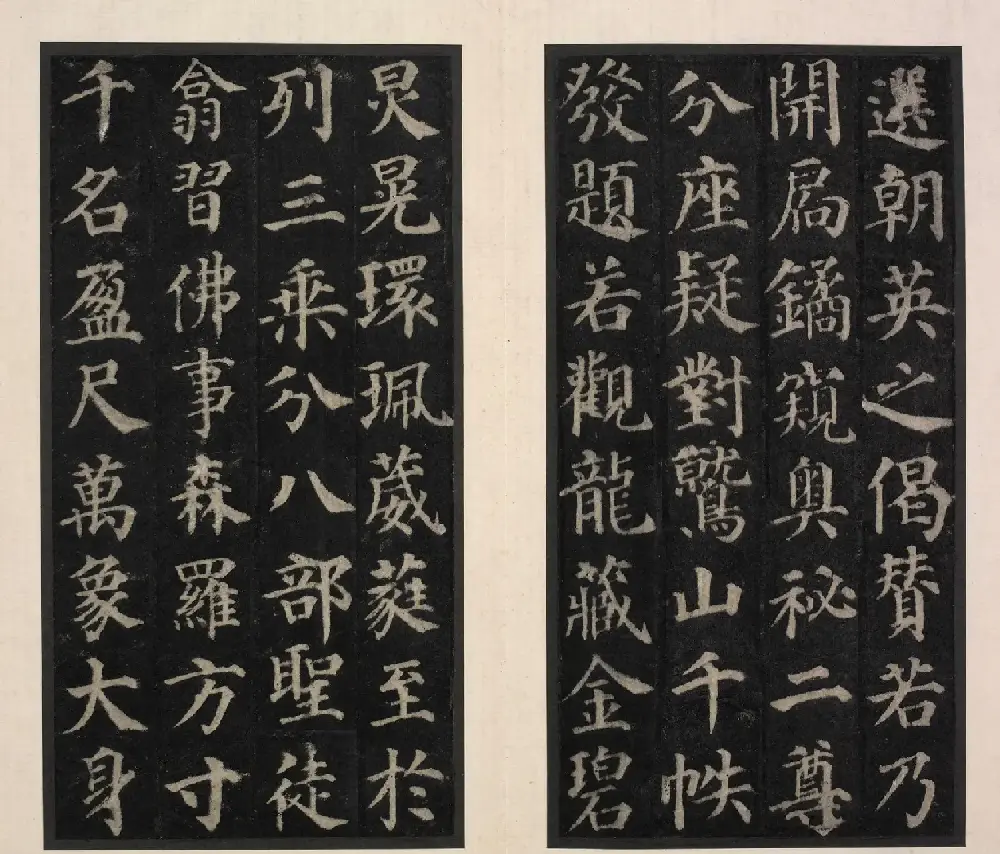 選朝英之偈賛若乃
開扄鐍窺奥秘二尊
分座疑對鷲山千帙
發題若觀龍藏金碧
炅晃環珮葳蕤至於
列三乘分八部聖徒
翕習佛事森羅方寸
千名盈尺萬象大身